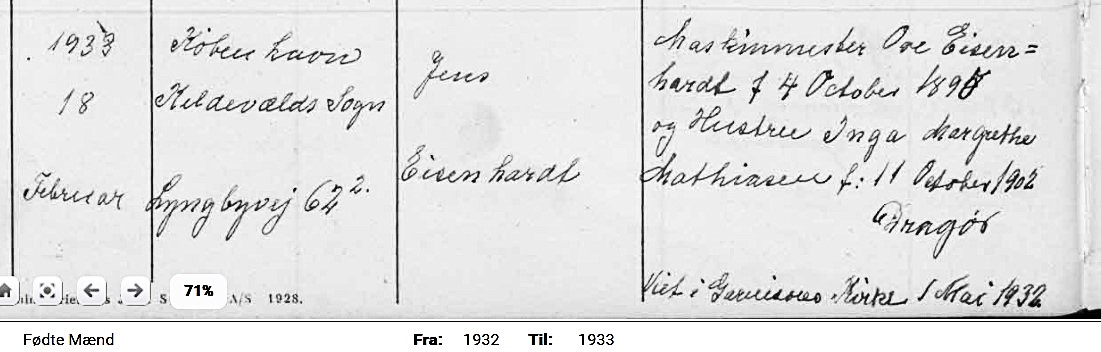 1933
18
Februar
København
Kildevælds Sogn
Lyngbyvej 62 2.
Jens
Eisenhardt
Maskinmester Ove Eisen=
hardt f 4 October 1898
og Hustru Inga Margrethe
Mathiasen f: 11 October 1902
Dragør
Viet i Garnisons Kirke 1 Mai 1932
71%
A/S 1928.
Fødte Mænd
Fra: 1932 Til: 1933